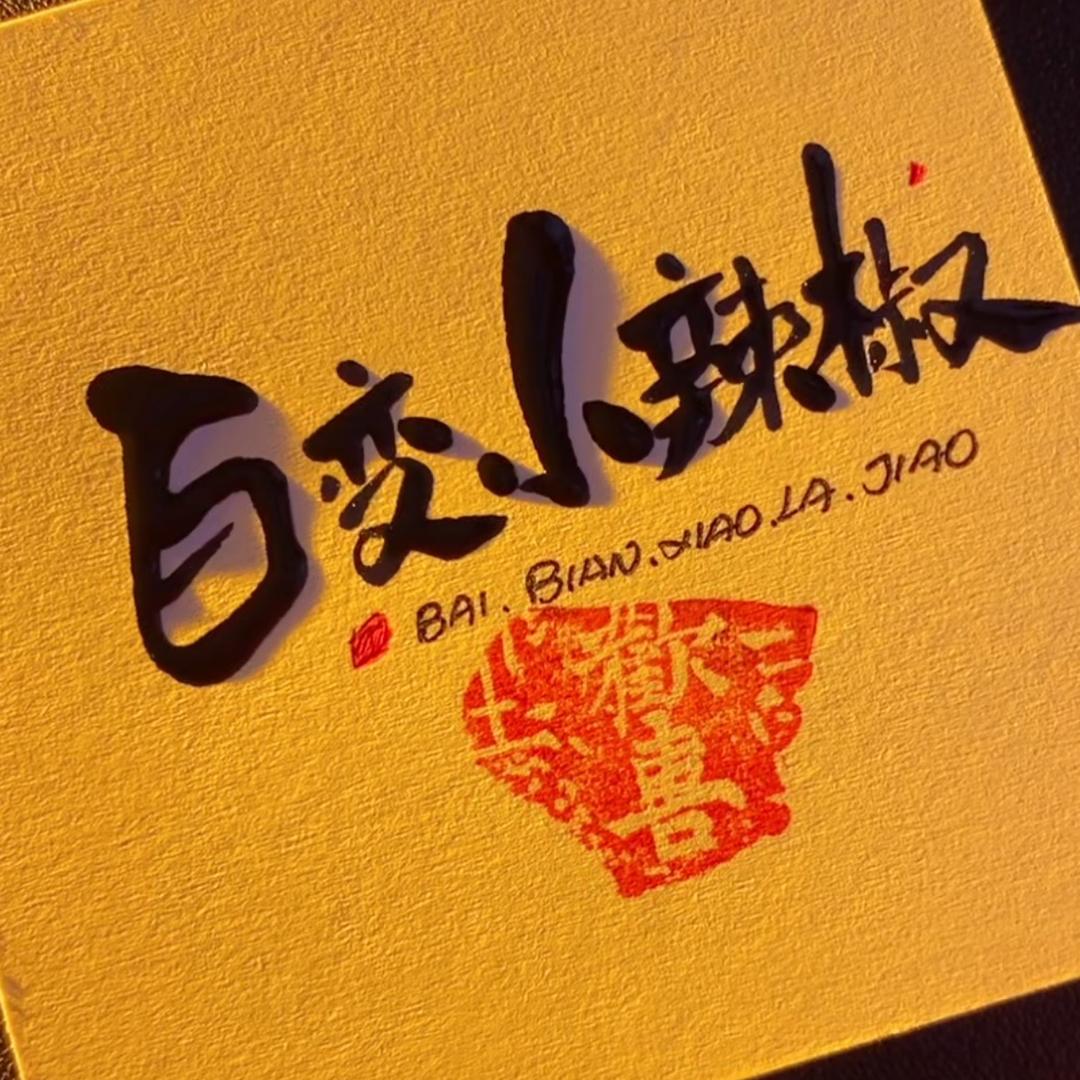 百变小辣椒
BAI. BIAN. XIAO. LA. JIAO
歡喜